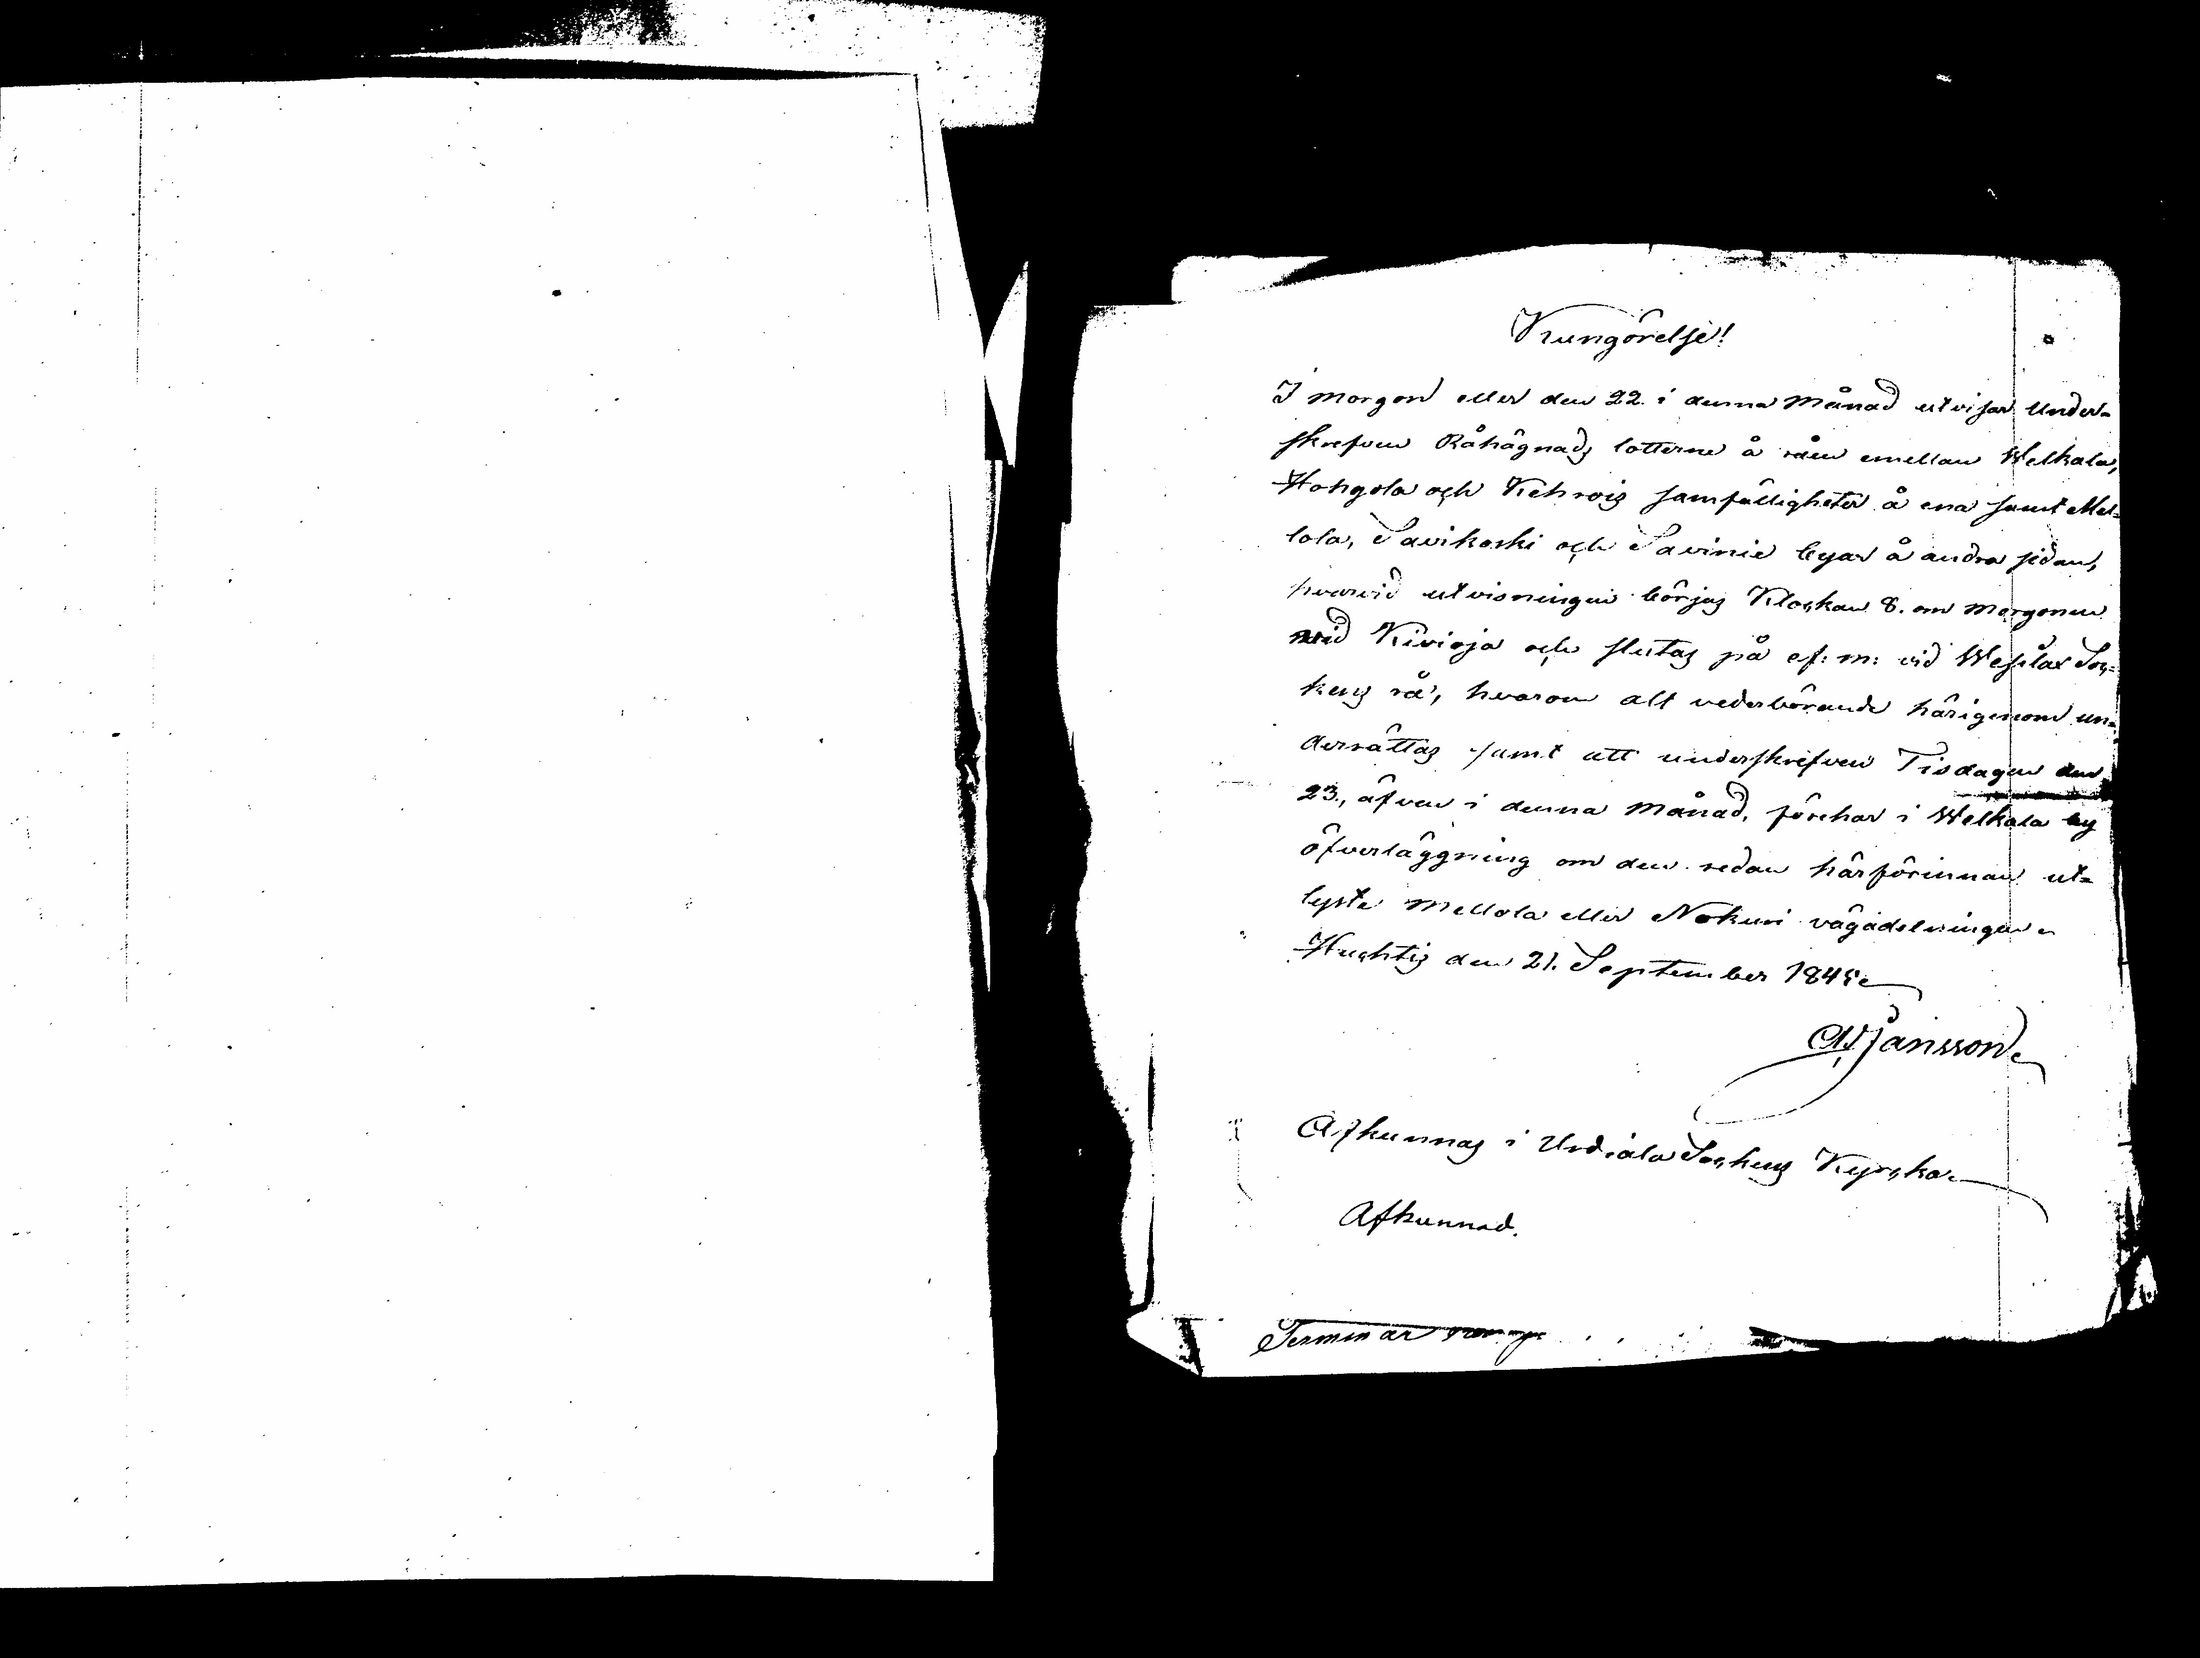 Kungörelse!
I morgon eller den 22 i denna Månad utvisar Under-
skrefven Råhägnads lotterne å råen emellan Welkala,
Hongola och Kehrois samfälligheter å ena samt Mel-
lola, Savikoski och Savinie byar å andra sidan,
hvarvid utvisningen börjas Klockan 8. om Morgonen
vid Kivioja och slutas på ef: m: vid Wesilax Soc-
kens rå, hvarom alt vederbörande härigenom un-
derrättas samt att underskrefven Tisdagen den
23., äfven i denna Månad, förehar i Welkala by
öfverläggning om den redan härförinnan ut-
lyste Mellola eller Nokuri vägadelningen
Huhtis den 21. September 1845
Jansson
Afkunnas i Urdiala Sockens Kyrcka
Afkunnad.